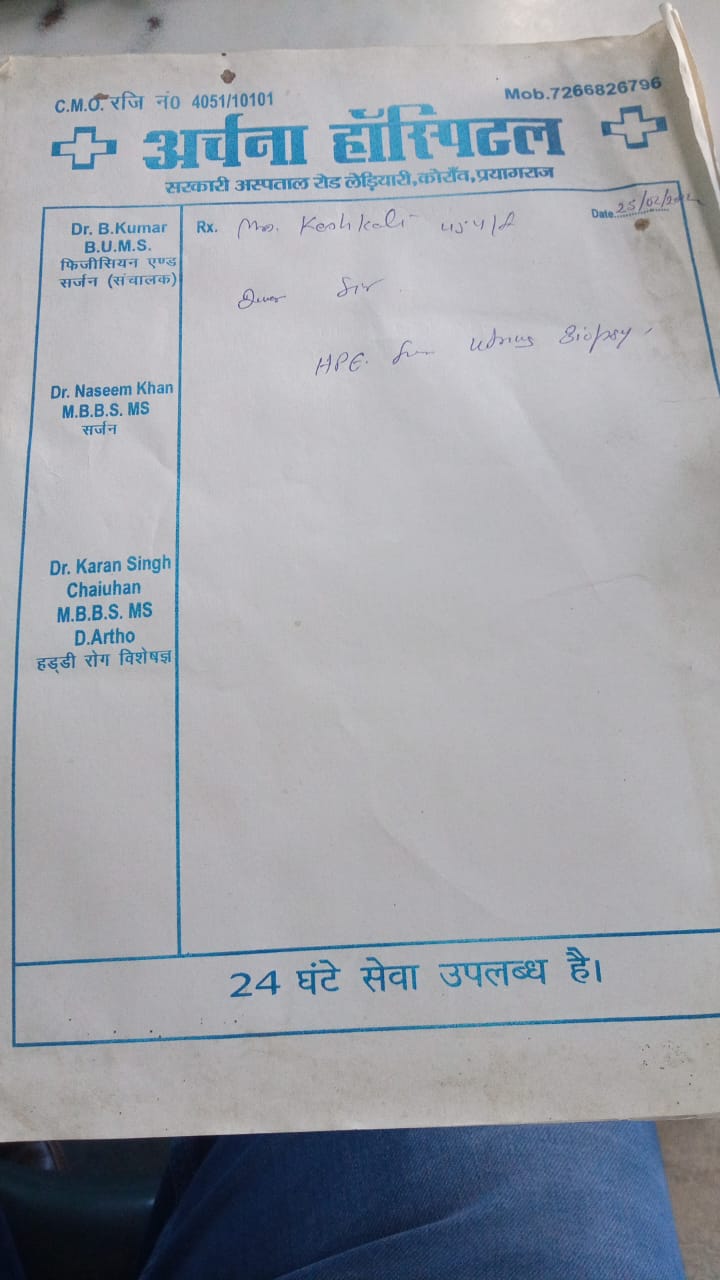 C.M.O. रजि नं0 4051/10101
Mob.7266826796
अर्चना हॉस्पिटल
सरकारी अस्पताल रोड लेड़ियारी,कोराँव,प्रयागराज
Date 25/02/
Dr. B.Kumar
B.U.M.S.
फिजीसियन एण्ड
सर्जन (संचालक)
Rx. Mrs. Keshkali 45 y/f
Sir
HPE. Biopsy
Dr. Naseem Khan
M.B.B.S. MS
सर्जन
Dr. Karan Singh
Chaiuhan
M.B.B.S. MS
D.Artho
हड्डी रोग विशेषज्ञ
24 घंटे सेवा उपलब्ध है।